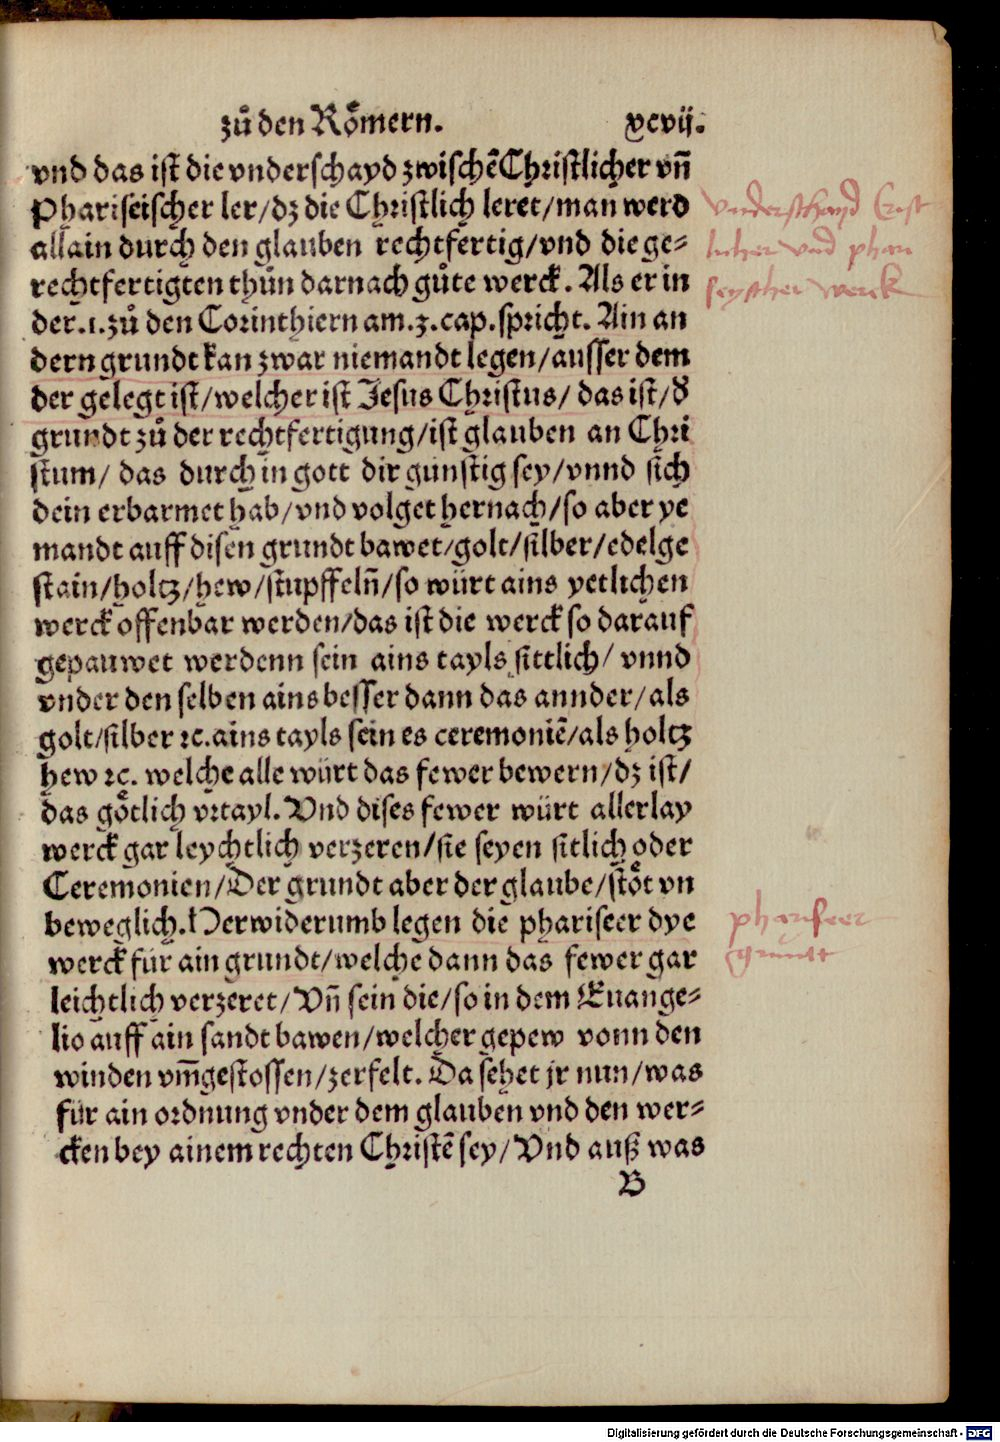 zů den Rőmern. xcvij.
vnd das ist die vnderschayd zwischē Christlicher vñ
Phariseischer ler/dz die Christlich leret/man werd
allain durch den glauben rechtfertig/vnd die ge-
rechtfertigten thůn darnach gůte werck. Als er in
der .1. zů den Corinthiern am .3. cap. spricht. Ain an
dern grundt kan zwar niemandt legen/ausser dem
der gelegt ist/welcher ist Jesus Christus/ das ist/ð
grundt zů der rechtfertigung/ist glauben an Chri
stum/ das durch in gott dir günstig sey/vnnd sich
dein erbarmet hab/vnd volget hernach/so aber ye
mandt auff disen grundt bawet/golt/silber/edelge
stain/holtz/hew/stupffelñ/so würt ains yetlichen
werck offenbar werden/das ist die werck so darauf
gepauwet werdenn sein ains tayls sittlich/ vnnd
vnder den selben ains besser dann das annder/als
golt/silber ꝛc. ains tayls sein es ceremoniē/als holtz
hew ꝛc. welche alle würt das fewer bewern/dz ist/
das gőtlich vrtayl. Vnd dises fewer würt allerlay
werck gar leychtlich verzeren/sie seyen sitlich oder
Ceremonien/Der grundt aber der glaube/stőt vn
beweglich. Herwiderumb legen die phariseer dye
werck für ain grundt/welche dann das fewer gar
leichtlich verzeret/Vñ sein die/so in dem Euange-
lio auff ain sandt bawen/welcher gepew vonn den
winden vm̄gestossen/zerfelt. Da sehet jr nun/was
für ain ordnung vnder dem glauben vnd den wer-
cken bey ainem rechten Christē sey/ Vnd auß was
B
vnderschayd Crist
licher vnd phari
seyscher werck
phariseer
grundt
Digitalisierung gefördert durch die Deutsche Forschungsgemeinschaft - DFG